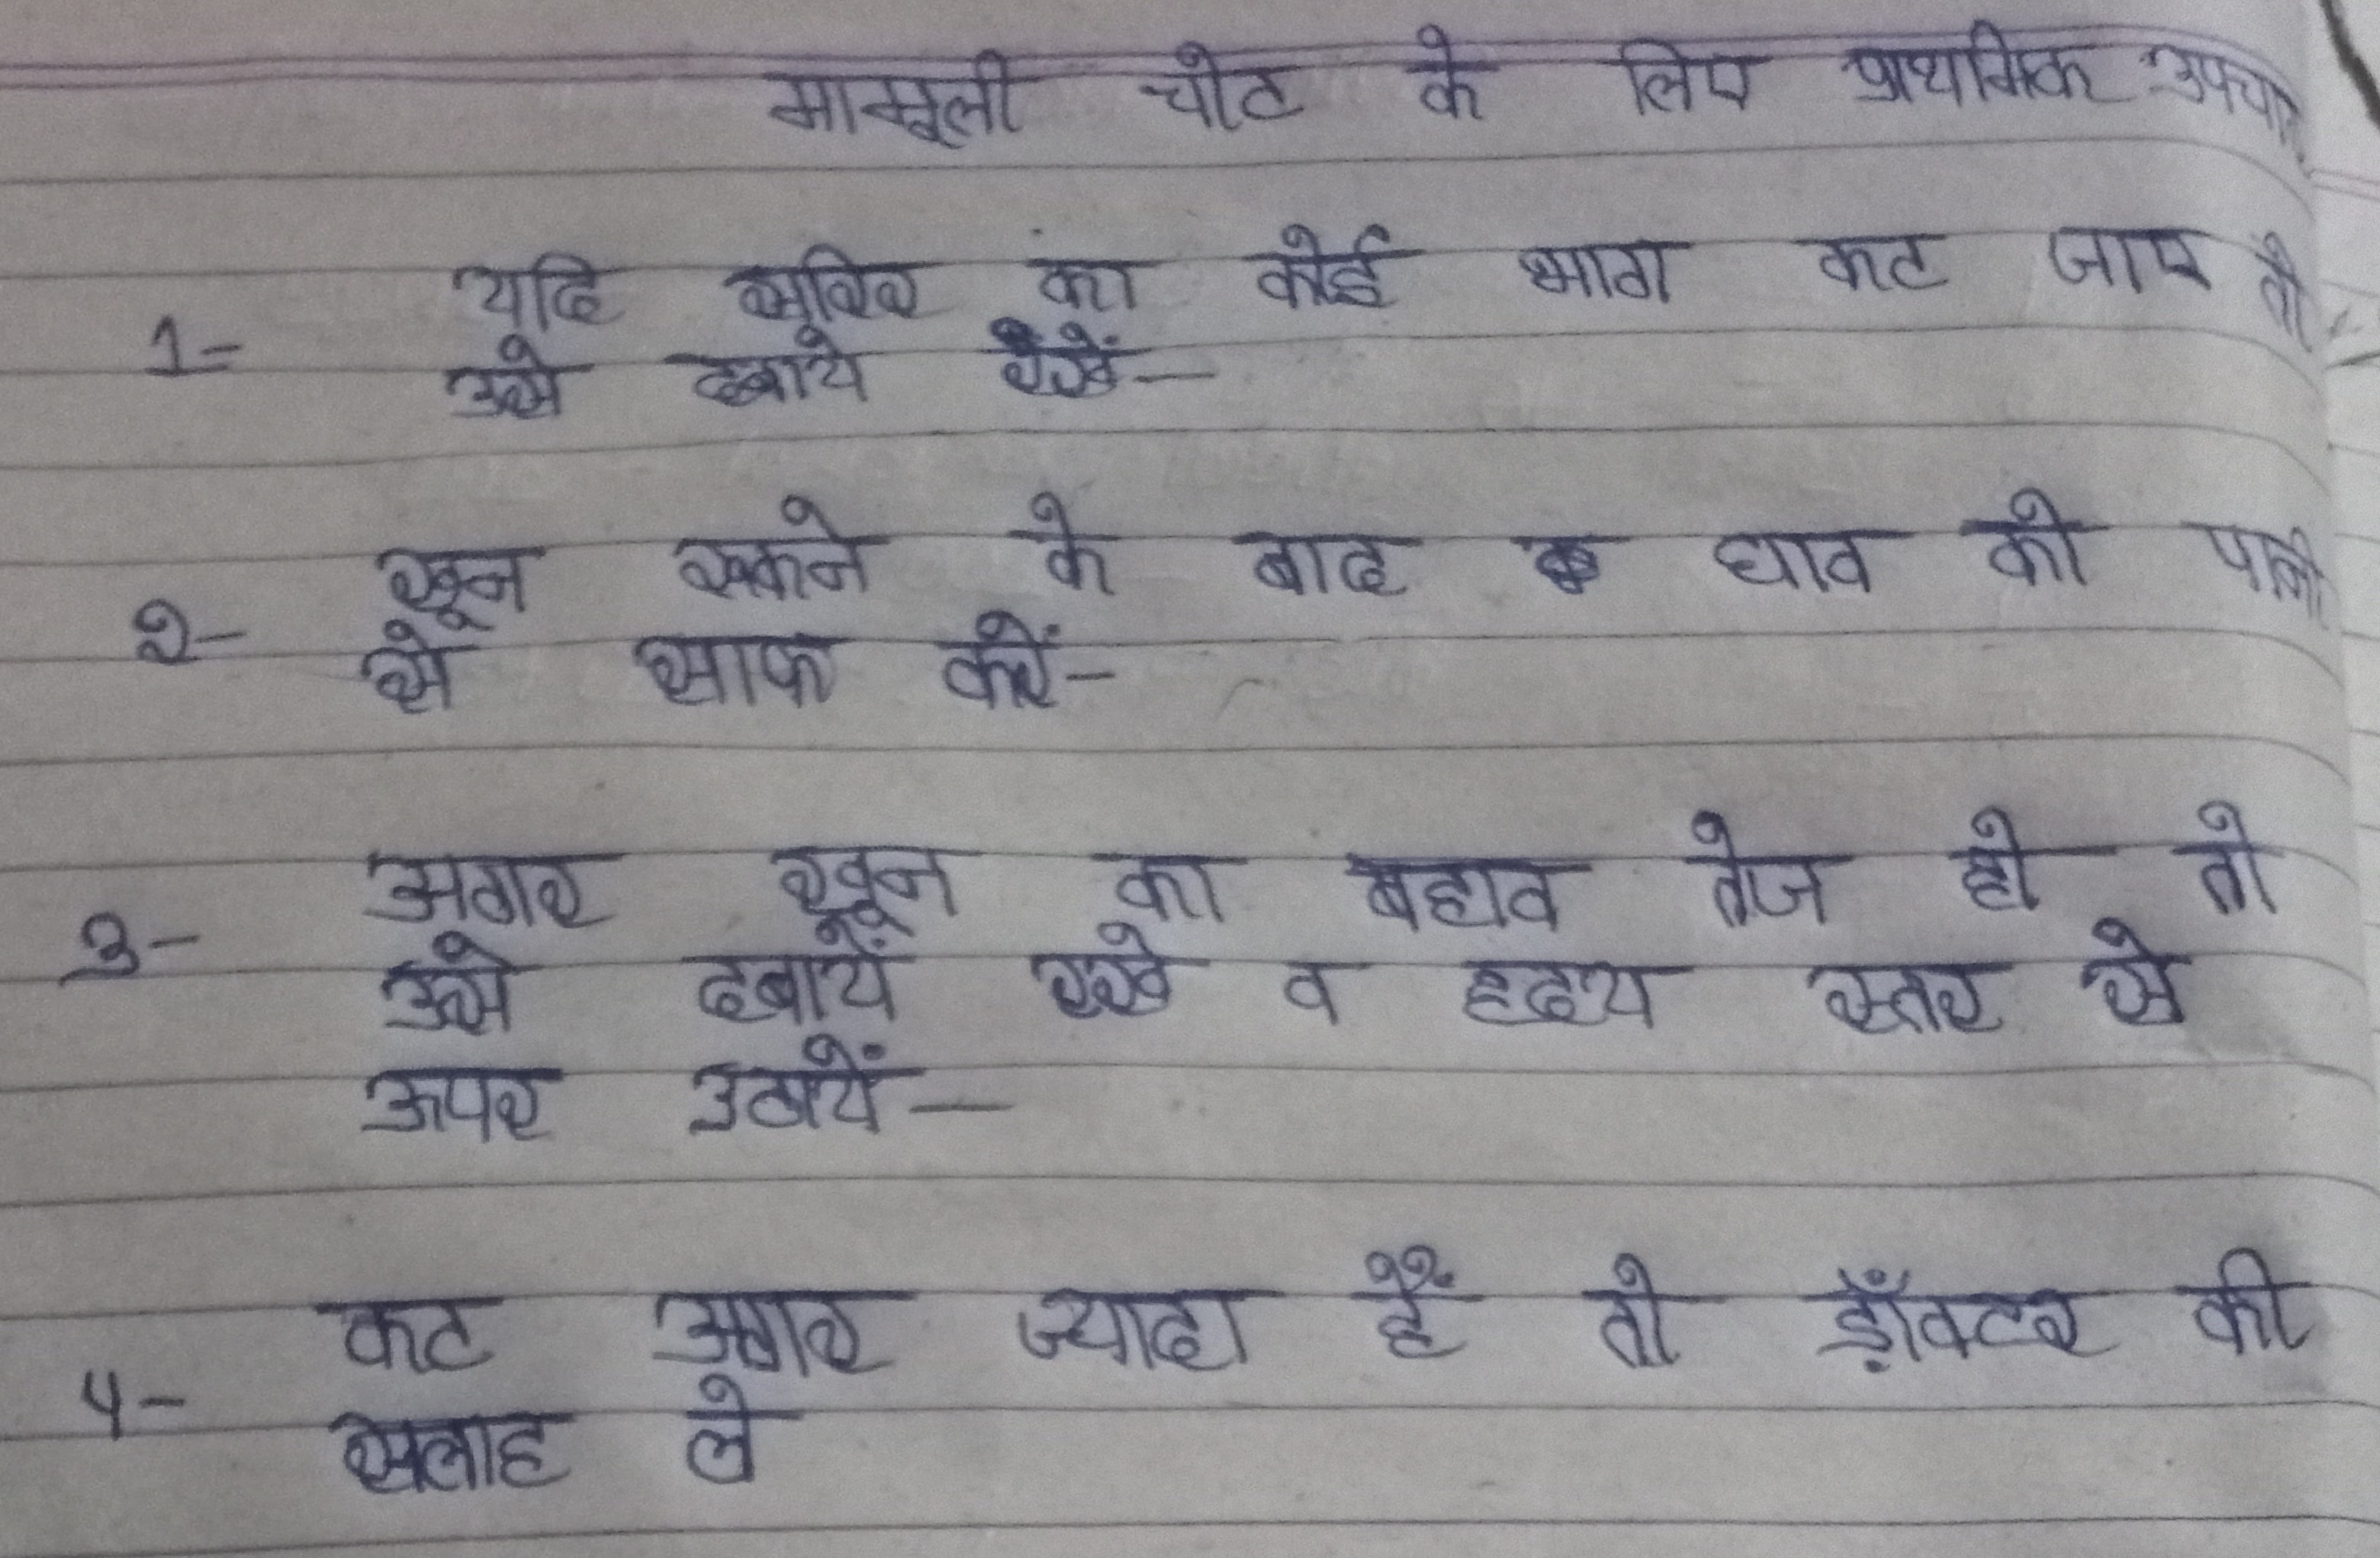 मामूली चोट के लिए प्राथमिक उपचार
1- यदि शरीर का कोई भाग कट जाए तो
उसे दबाये रखें—
२- खून रूकने के बाद घाव को पानी
से साफ करें-
3- अगर खून का बहाव तेज हो तो
उसे दबायें रखे व हृदय स्तर से
ऊपर उठायें—
4- कट अगर ज्यादा हैं तो डॉक्टर की
सलाह ले